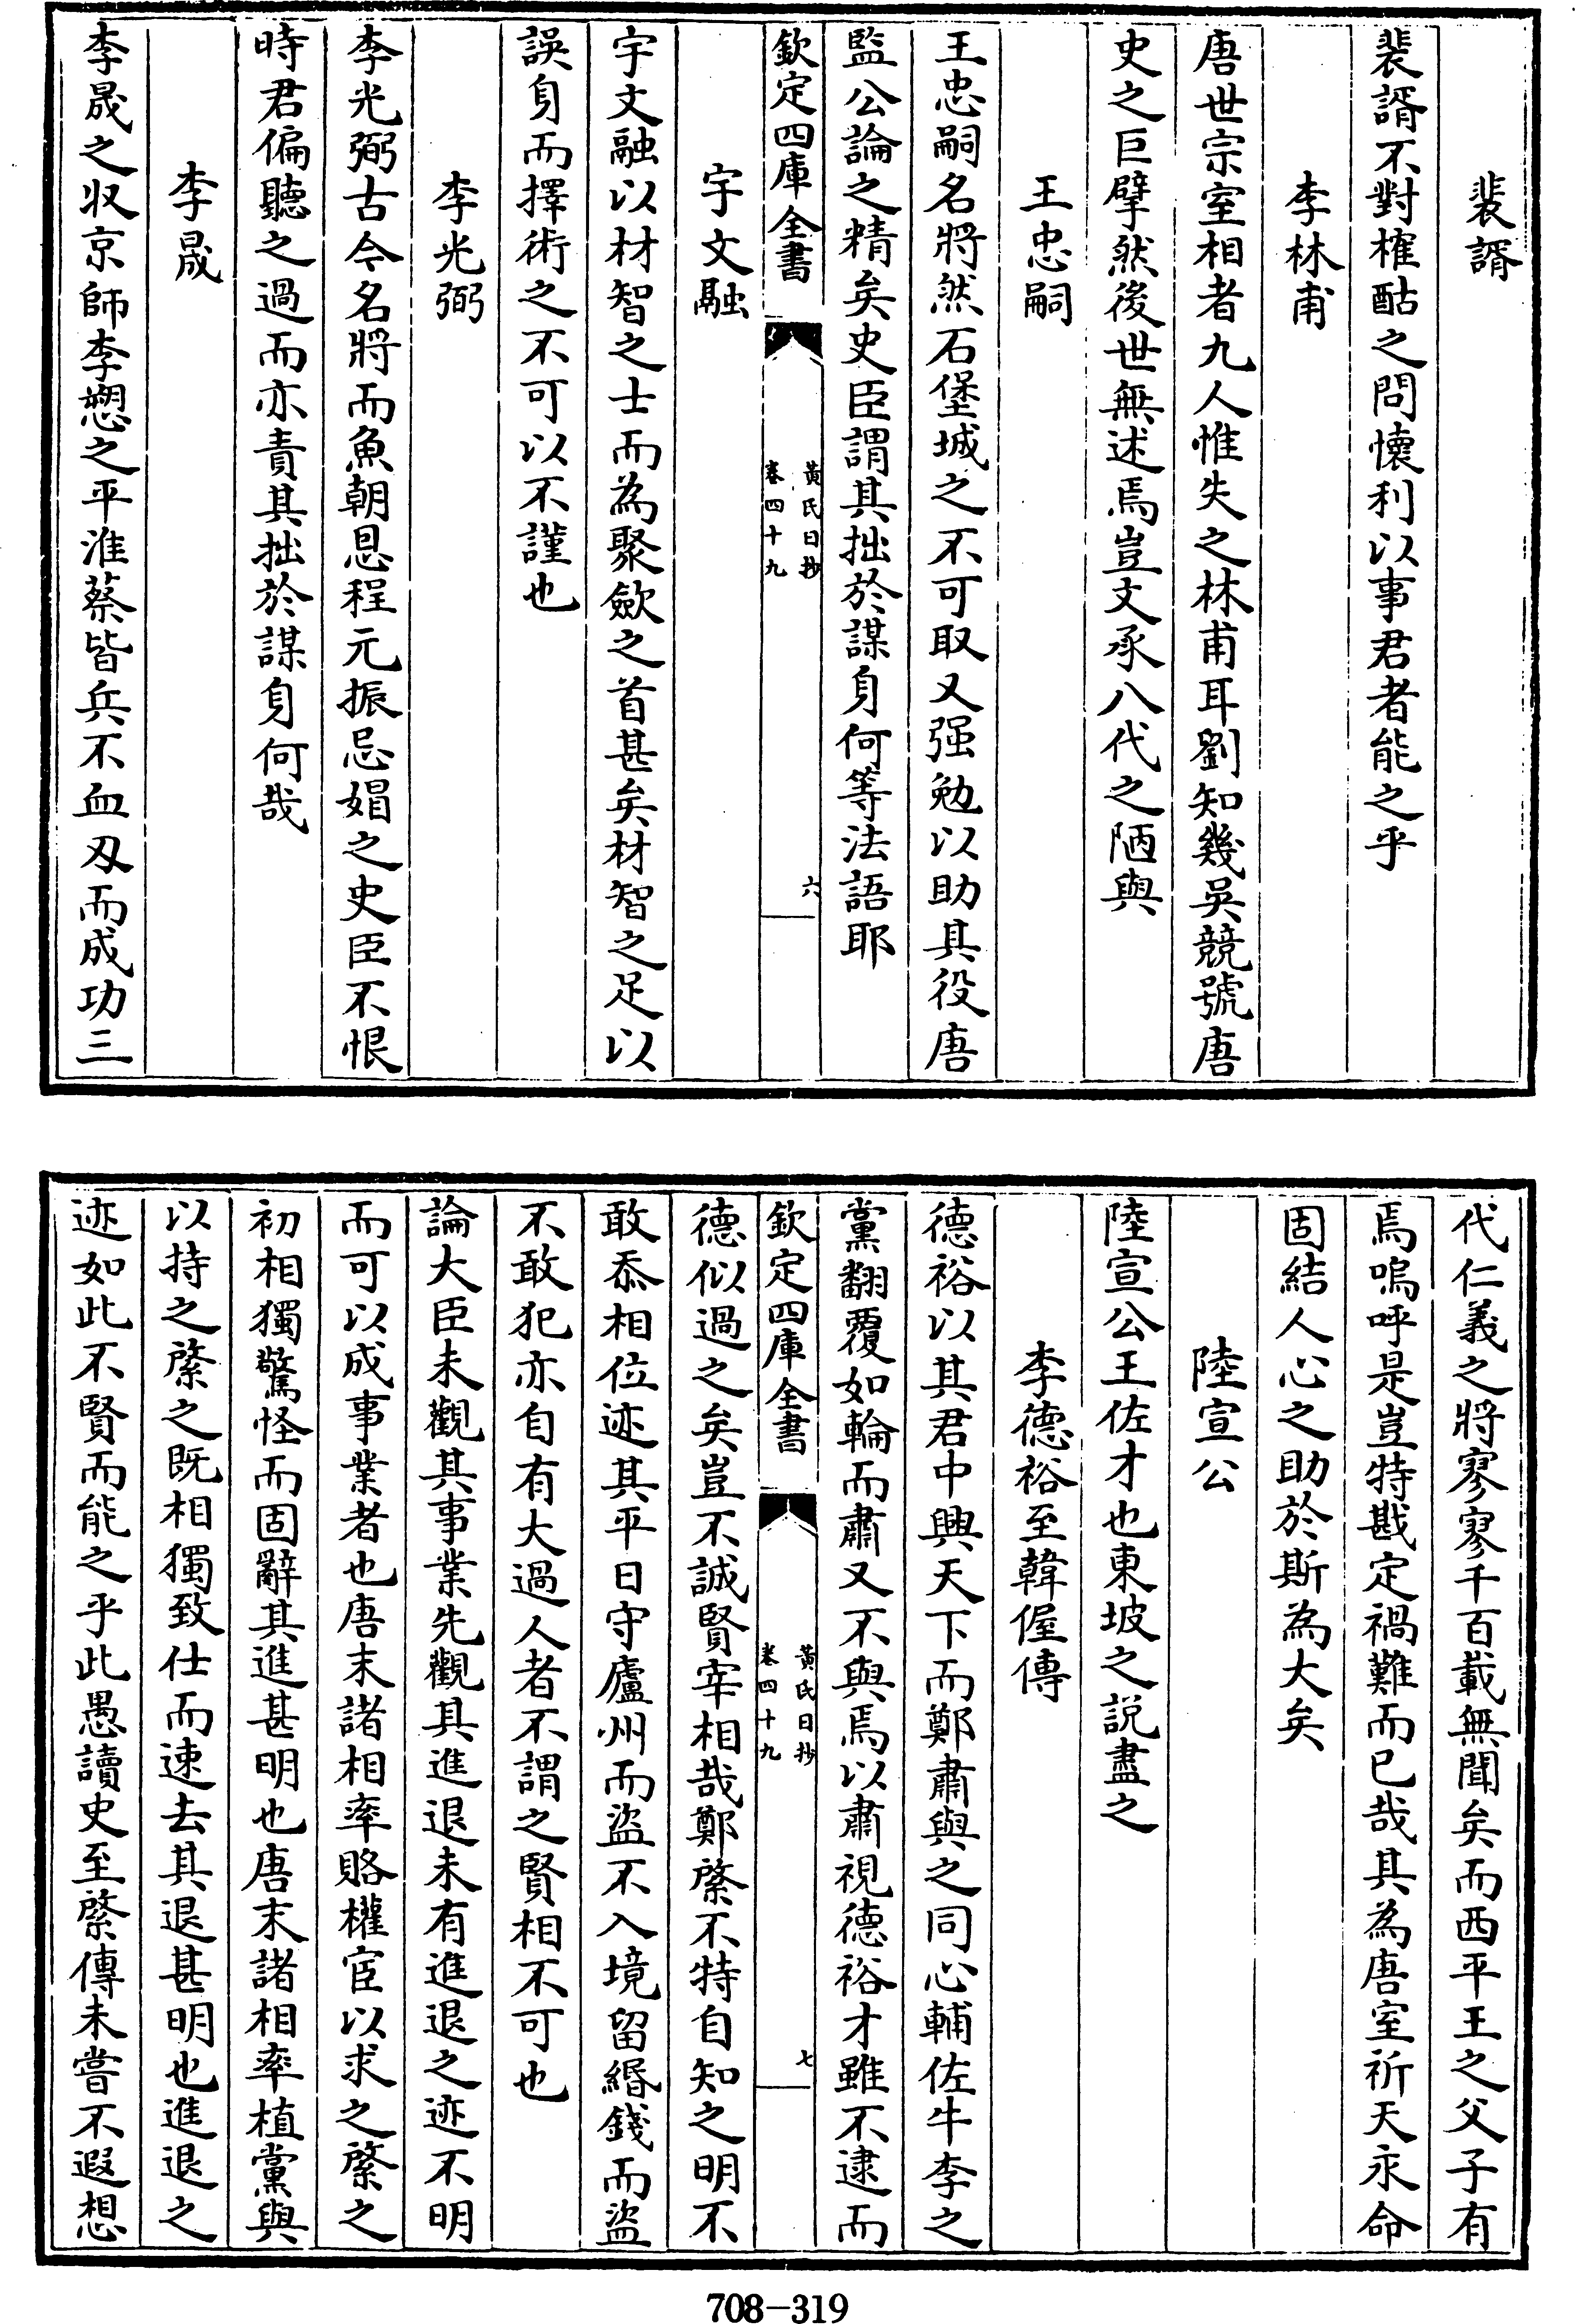 裴諝
裴諝不對榷酤之問懷利以事君者能之乎
李林甫
唐世宗室相者九人惟失之林甫耳劉知幾吳競號唐
史之巨擘然後世無述焉豈文承八代之陋與
王忠嗣
王忠嗣名將然石堡城之不可取又强勉以助其役唐
監公論之精矣史臣謂其拙於謀身何等法語耶
欽定四庫全書
黃氏日抄
卷四十九
六
宇文融
宇文融以材智之士而為聚歛之首甚矣材智之足以
誤身而擇術之不可以不謹也
李光弼
李光弼古今名將而魚朝恩程元振忌娼之史臣不恨
時君偏聽之過而亦責其拙於謀身何哉
李晟
李晟之収京師李愬之平淮蔡皆兵不血刄而成功三
代仁義之將寥寥千百載無聞矣而西平王之父子有
焉嗚呼是豈特戡定禍難而已哉其為唐室祈天永命
固結人心之助於斯為大矣
陸宣公
陸宣公王佐才也東坡之説盡之
李德裕至韓偓傳
德裕以其君中興天下而鄭肅與之同心輔佐牛李之
黨翻覆如輪而肅又不與焉以肅視德裕才雖不逮而
欽定四庫全書
黃氏日抄
卷四十九
七
德似過之矣豈不誠賢宰相哉鄭綮不特自知之明不
敢忝相位迹其平日守廬州而盜不入境留緡錢而盜
不敢犯亦自有大過人者不謂之賢相不可也
論大臣未觀其事業先觀其進退未有進退之迹不明
而可以成事業者也唐末諸相率賂權宦以求之綮之
初相獨驚怪而固辭其進甚明也唐末諸相率植黨與
以持之綮之既相獨致仕而速去其退甚明也進退之
迹如此不賢而能之乎此愚讀史至綮傳未嘗不遐想
708-319